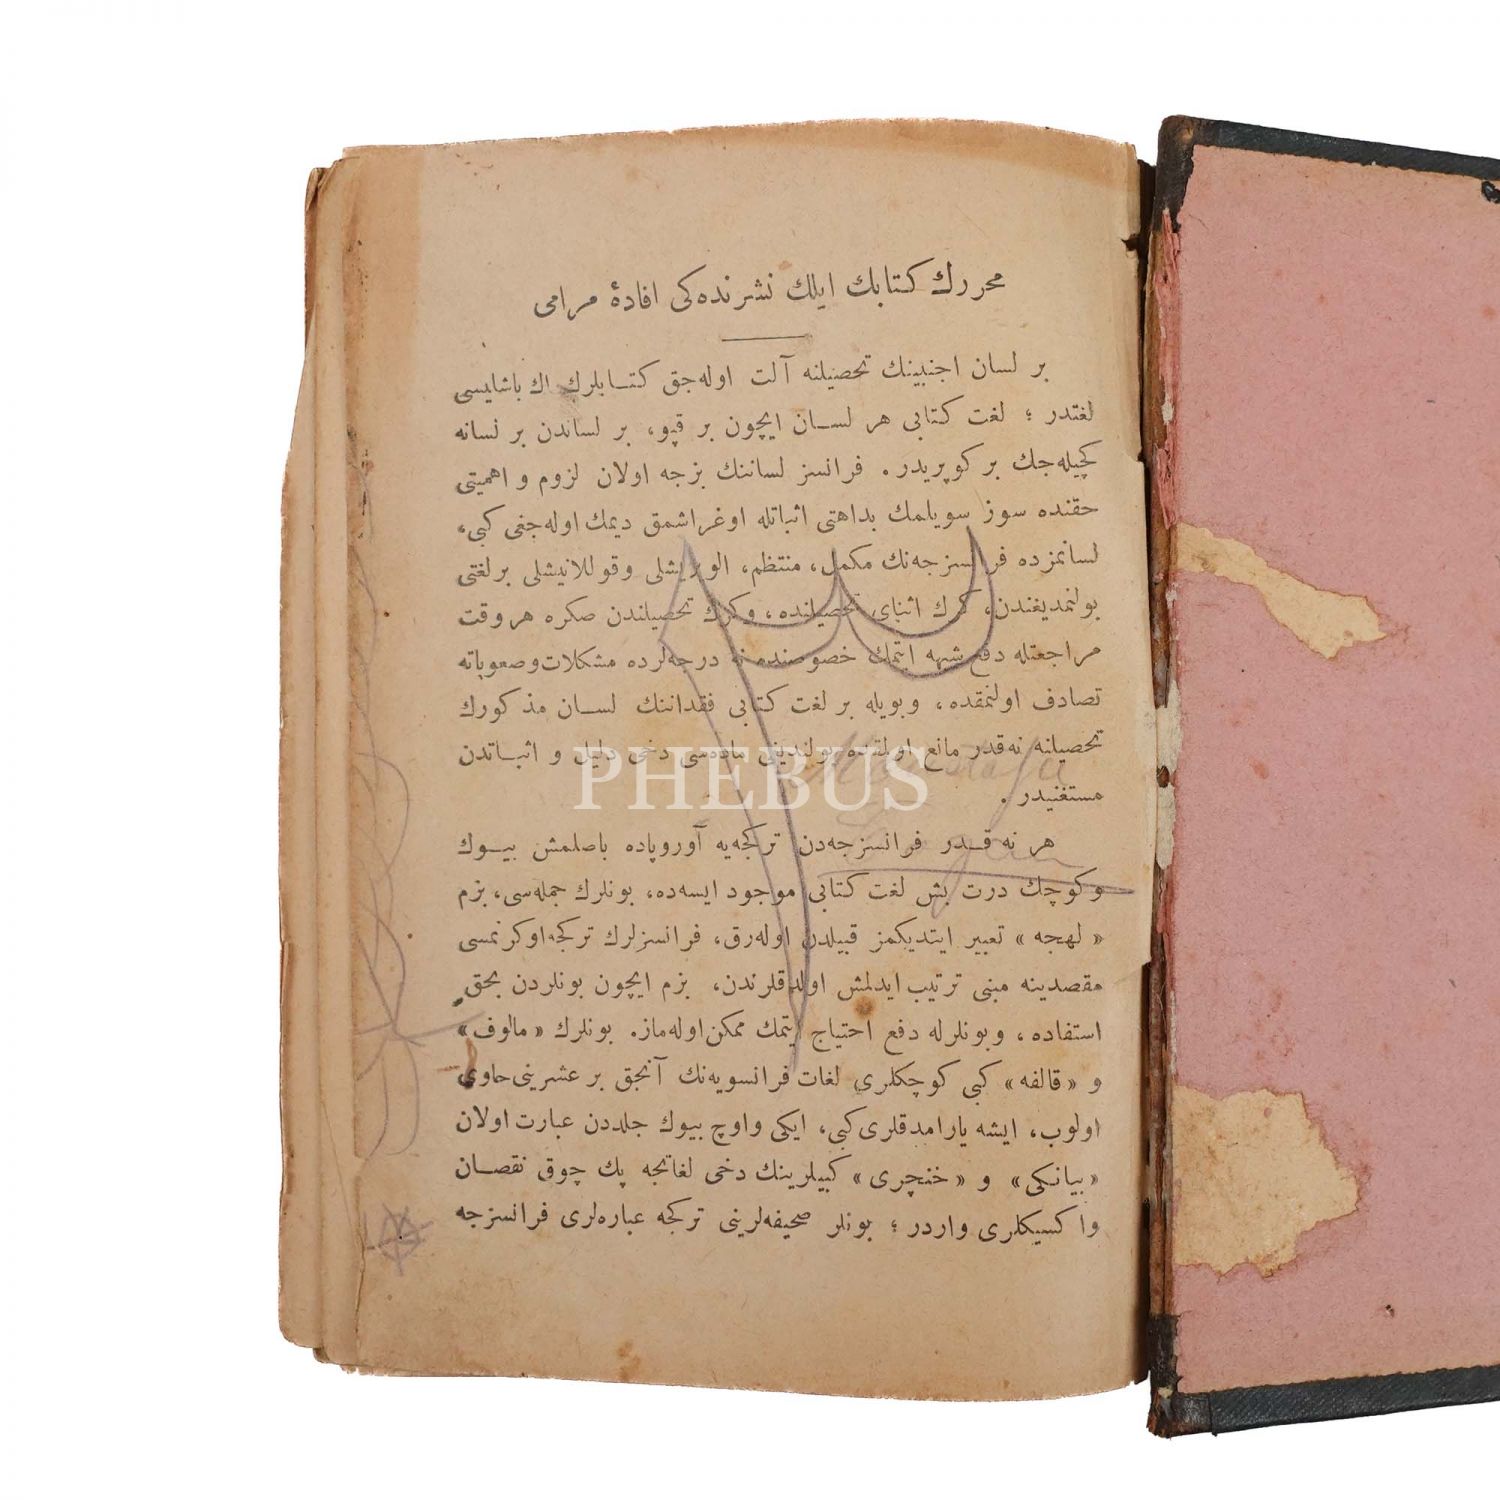 محررك كتابك ايلك نشرنده‌كى افادهٔ مرامى
بر لسان اجنبينك تحصيلنه آلت اوله‌جق كتابلرك اك باشليسى
لغتدر ؛ لغت كتابى هر لسان ايچون بر قپو، بر لساندن بر لسانه
كچيله‌جك بر كوپريدر. فرانسز لساننك بزجه اولان لزوم و اهميتى
حقنده سوز سويلمك بداهتى اثباتله اوغراشمق ديمك اوله‌جغى كبى،
لسانمزده فرانسزجه‌نك مكمل، منتظم، الويريشلى وقوللانيشلى بر لغتى
بولنمديغندن، كرك اثناى تحصيلنده، وكرك تحصيلندن صكره هر وقت
مراجعتله دفع شبهه ايتمك خصوصنده نه درجه‌لرده مشكلات وصعوباته
تصادف اولنمقده، وبويله بر لغت كتابى فقداننك لسان مذكورك
تحصيلنه نه‌قدر مانع اولمقده بولنديغى ماده‌سى دخى دليل و اثباتدن
مستغنيدر.
هر نه قدر فرانسزجه‌دن تركجه‌يه آوروپاده باصلمش بيوك
وكوچك درت بش لغت كتابى موجود ايسه‌ده، بونلرك جمله‌سى، بزم
« لهجه » تعبير ايتديكمز قبيلدن اوله‌رق، فرانسزلرك تركجه اوكرنمسى
مقصدينه مبنى ترتيب ايدلمش اولدقلرندن، بزم ايچون بونلردن بحق
استفاده، وبونلرله دفع احتياج ايتمك ممكن اوله‌ماز. بونلرك « مالوف »
و « قالفه » كبى كوچكلرى لغات فرانسويه‌نك آنجق بر عشرينى حاوى
اولوب، ايشه يارامدقلرى كبى، ايكى واوچ بيوك جلددن عبارت اولان
« بيانكى » و « خنچرى » كبيلرينك دخى لغاتجه پك چوق نقصان
واكسيكلرى واردر ؛ بونلر صحيفه‌لرينى تركجه عباره‌لرى فرانسزجه
PHEBUS